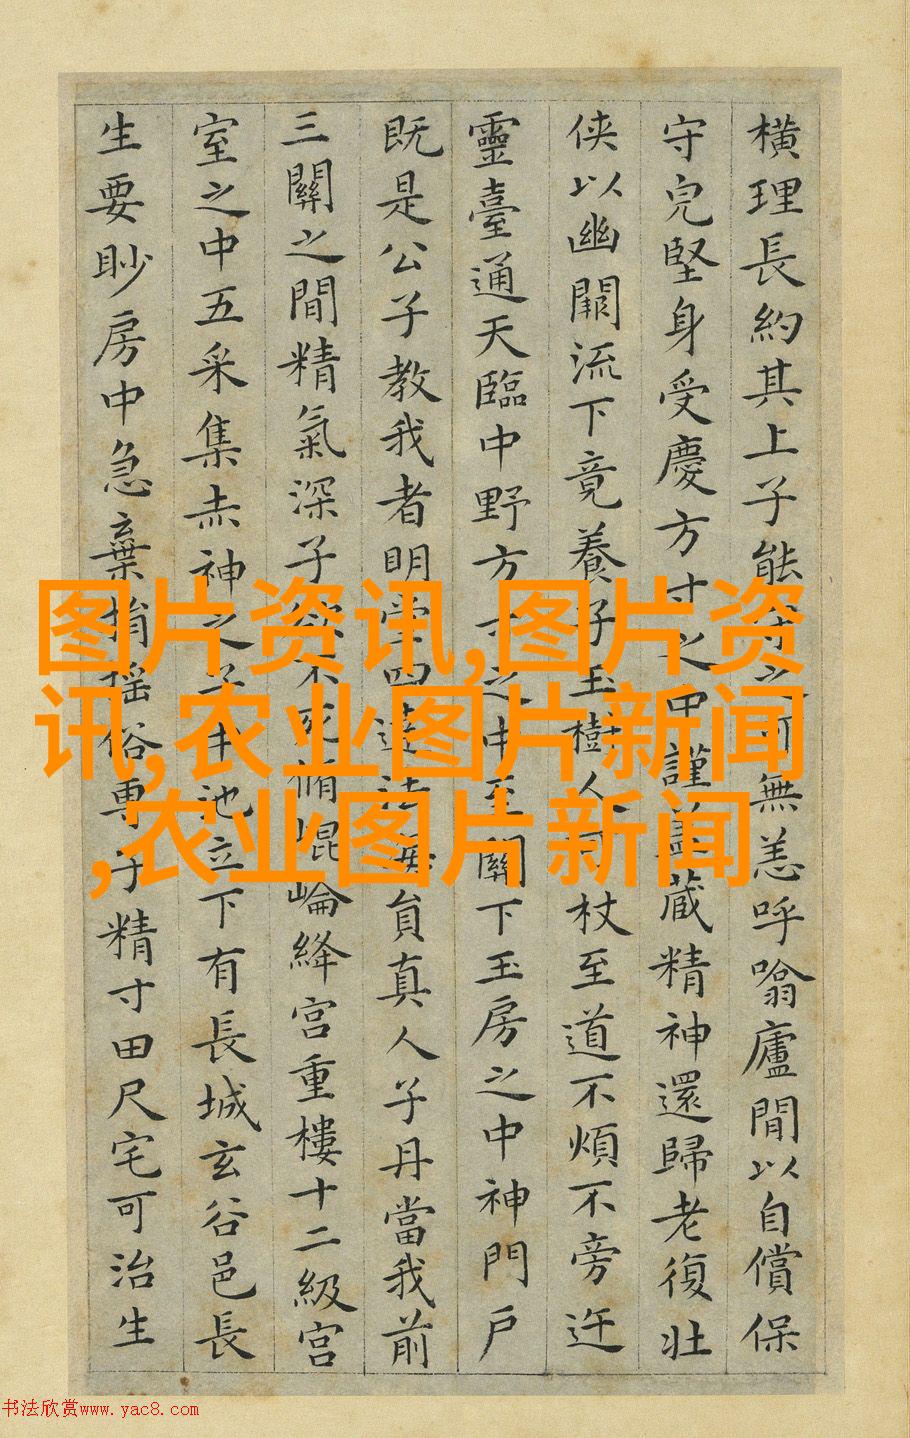 橫理長約其上子能守之可無恙呼噏廬間以自償保
守皃堅身受慶方寸之中謹蓋藏精神還歸老復壯
俠以幽闕流下竟養子玉樹人可杖至道不煩不旁迕
靈臺通天臨中野方寸之中至關下玉房之中神門戶
既是公子教我者明堂四達法海員真人子丹當我前
三關之間精氣深子欲不死脩崐崘絳宮重樓十二級宮
室之中五采集赤神之子中池立下有長城玄谷邑長
生要眇房中急棄捐搖俗專子精寸田尺宅可治生
图片资讯,图片资
讯,农业图片新闻
,农业图片新闻
书法欣赏www.yac8.com